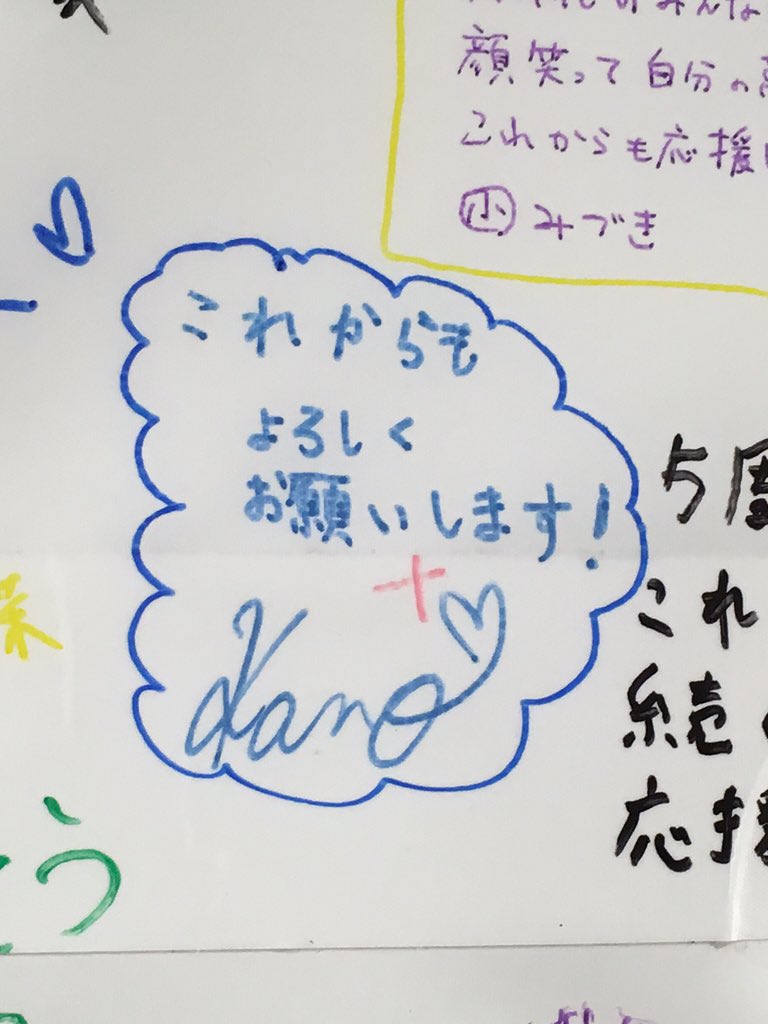 みんな
顔笑って自分の
これからも応援
小 みづき
これからも
よろしく
お願いします!
Kano
5周
これ
続
応援
う